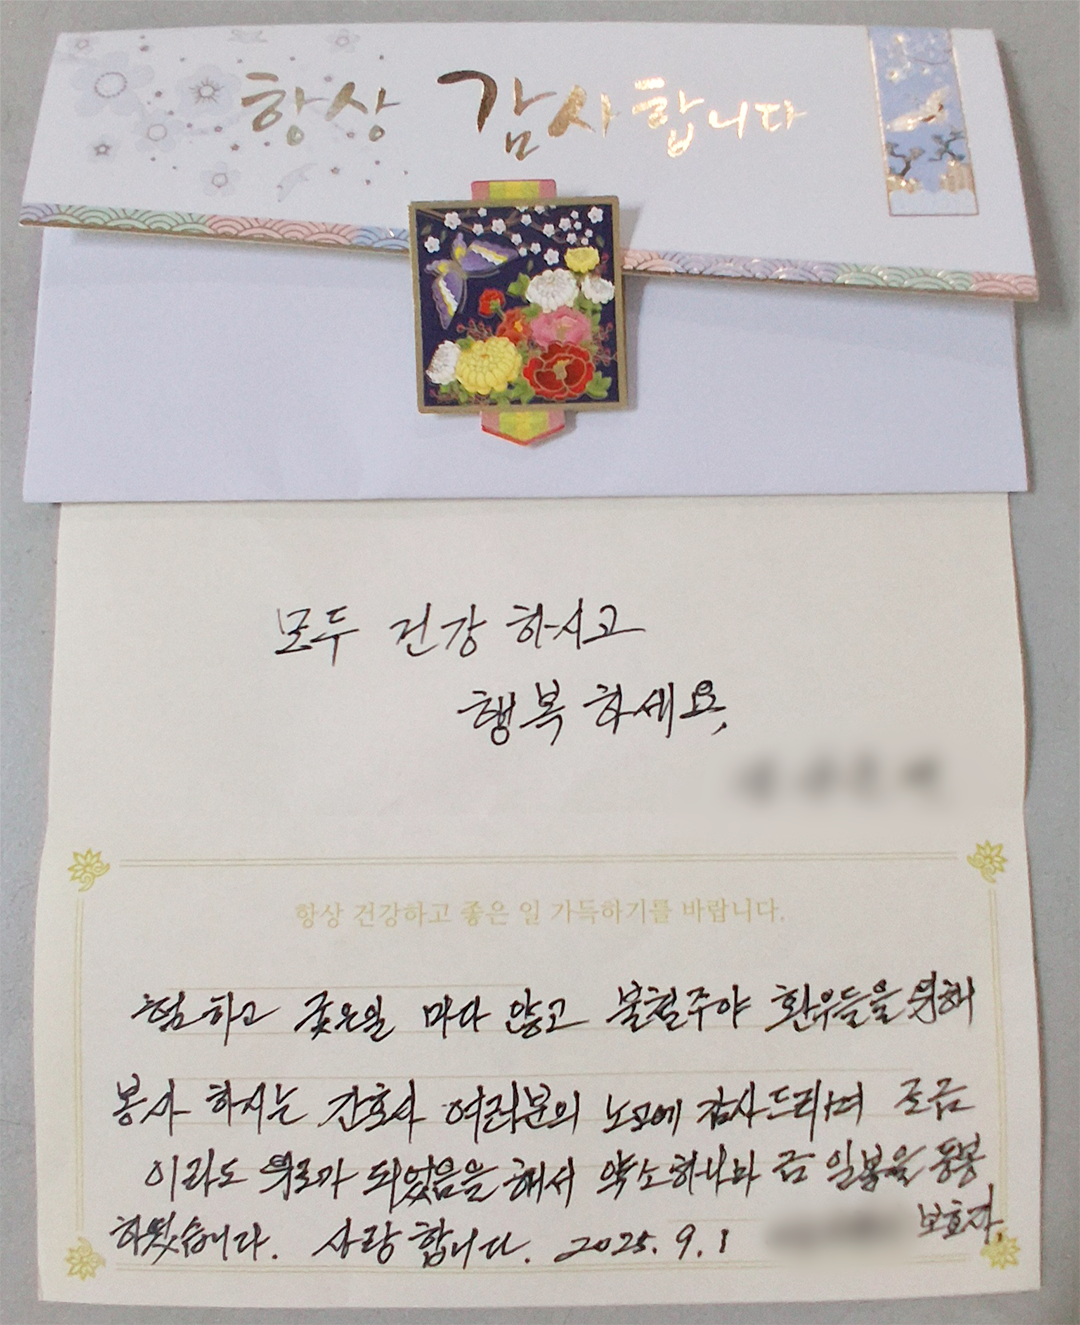 항상 감사합니다
모두 건강 하시고
행복 하세요,
항상 건강하고 좋은 일 가득하기를 바랍니다.
험하고 궂은일 마다 않고 불철주야 환우들을 위해
봉사 하시는 간호사 여러분의 노고에 감사드리며 조금
이라도 위로가 되었음을 해서 약소하나마 금 일봉을 동봉
하였습니다. 사랑 합니다. 2025. 9. 1 보호자,